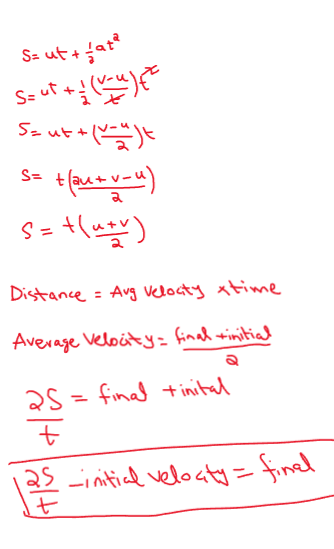 S = ut + 1/2 at²
S = ut + 1/2 ((v-u)/t) t²
S = ut + ((v-u)/2) t
S = t((2u+v-u)/2)
S = t((u+v)/2)
Distance = Avg velocity x time
Average Velocity = (final + initial)/2
2S/t = final + inital
2S/t - initial velocity = final